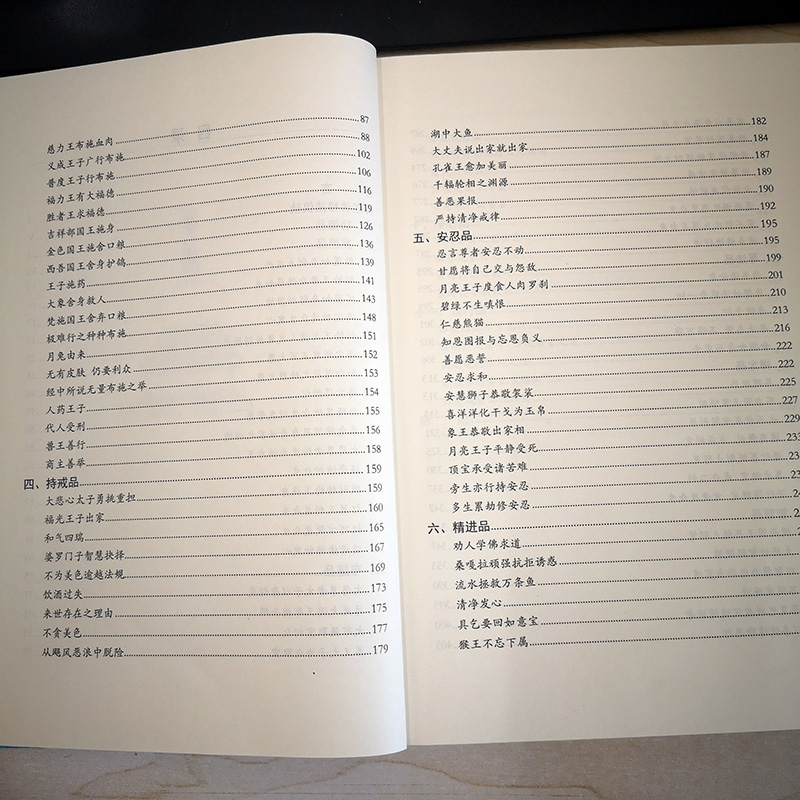 慈力王布施血肉 87
义成王子广行布施 88
普度王子行布施 102
福力王有大福德 106
胜者王求福德 116
吉祥部国王施身 119
金色国王施舍口粮 126
西吾国王舍身护鸽 136
王子施药 139
大象舍身救人 141
梵施国王舍弃口粮 143
极难行之种种布施 148
月兔由来 151
无有皮肤 仍要利众 152
经中所说无量布施之举 153
人药王子 154
代人受刑 155
普王善行 156
商主善举 158
四、持戒品 159
大悲心太子勇挑重担 159
福光王子出家 160
和气四瑞 165
婆罗门子智慧抉择 167
不为美色逾越法规 169
饮酒过失 173
来世存在之理由 175
不贪美色 177
从飓风恶浪中脱险 179
湖中大鱼 182
大丈夫说出家就出家 184
孔雀王愈加美丽 187
千辐轮相之渊源 189
善恶果报 190
严持清净戒律 192
五、安忍品 195
忍言尊者安忍不动 195
甘愿将自己交与怨敌 199
月亮王子度食人肉罗刹 201
碧绿不生嗔恨 210
仁慈熊猫 213
知恩图报与忘恩负义 216
善愿恶誓 222
安忍求和 222
安慧狮子恭敬袈裟 225
喜洋洋化干戈为玉帛 227
象王恭敬出家相 229
月亮王子平静受死 233
顶宝承受诸苦难
旁生亦行持安忍
多生累劫修安忍
六、精进品
劝人学佛求道
桑嘎拉顽强抗拒诱惑
流水拯救万条鱼
清净发心
具乞要回如意宝
猴王不忘下属